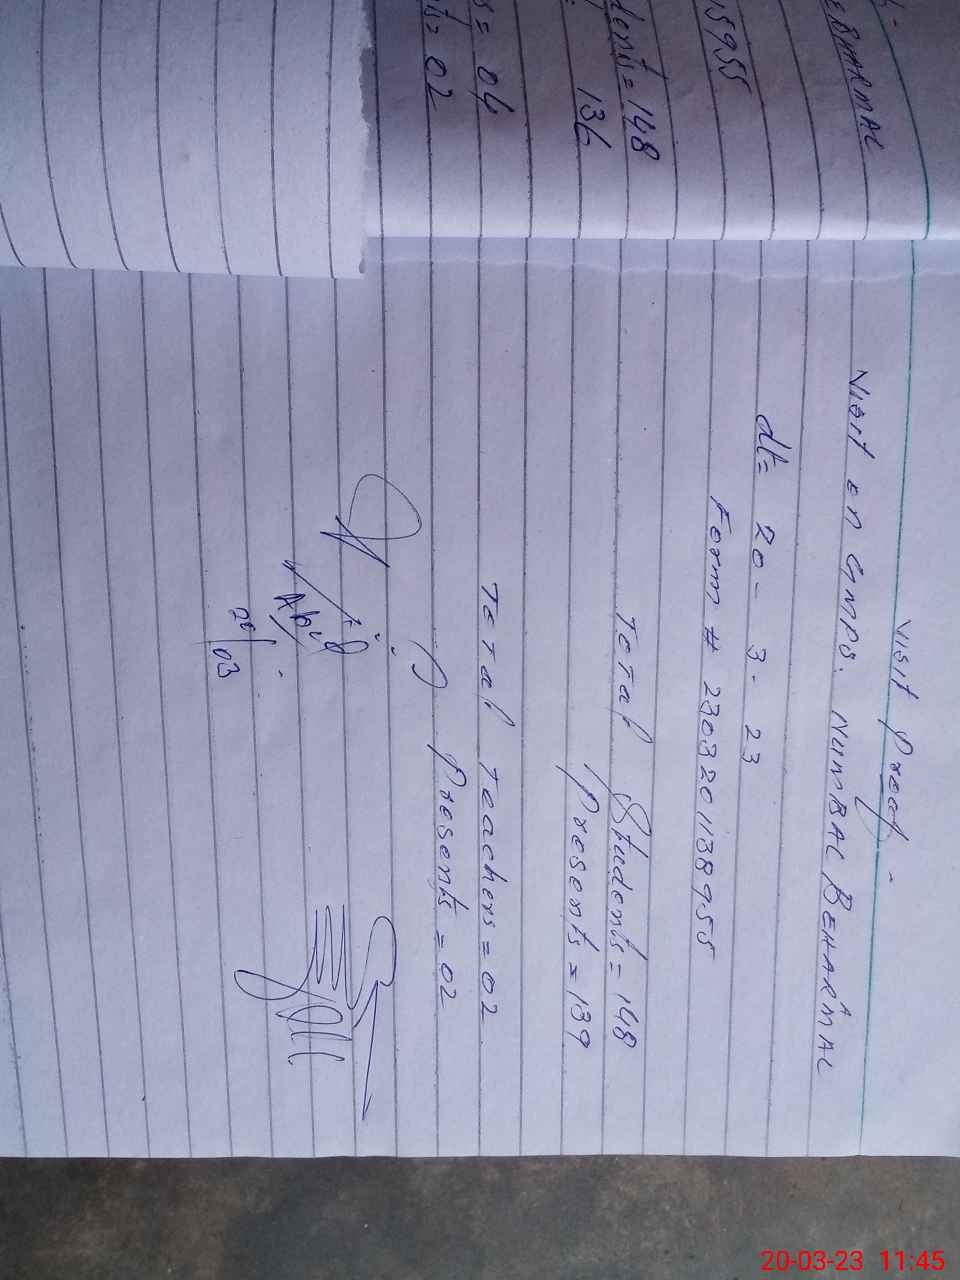 Visit Proof
Visit on GMPS. NUMBAL BEHARMAL
dt= 20-3-23
Form # 230320113895 5
Total Students = 148
Presents = 139
Total Teachers = 02
Presents = 02
Abid
20/03
EHARMAL
15955
dents = 148
136
s = 04
ts = 02
20-03-23 11:45